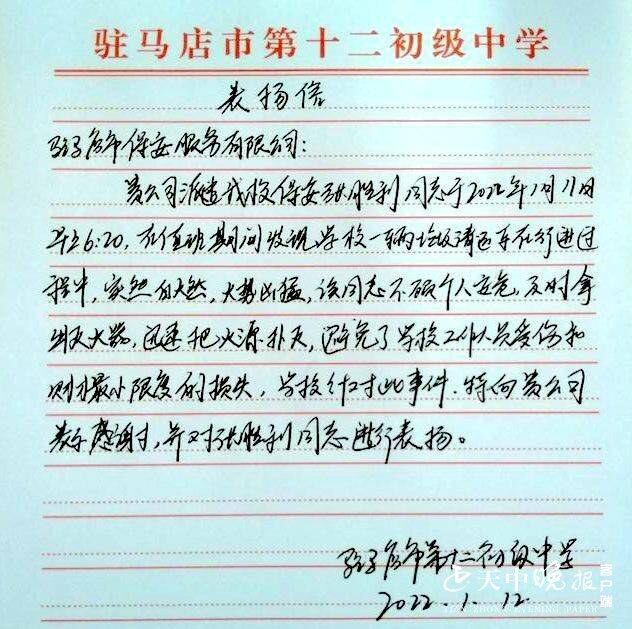 驻马店市第十二初级中学
表扬信
驻马店市保安服务有限公司：
贵公司派遣我校保安张胜利同志于2022年1月11日
早6:20，在值班期间发现学校一辆垃圾清运车在行进过
程中，突然自燃，火势凶猛，该同志不顾个人安危，及时拿
出灭火器，迅速把火源扑灭，避免了学校工作人员受伤和
财产最小限度的损失，学校针对此事件，特向贵公司
表示感谢，并对张胜利同志进行表扬。
驻马店市第十二初级中学
2022.1.12.
天中晚报 客户端
EVENING PAPER